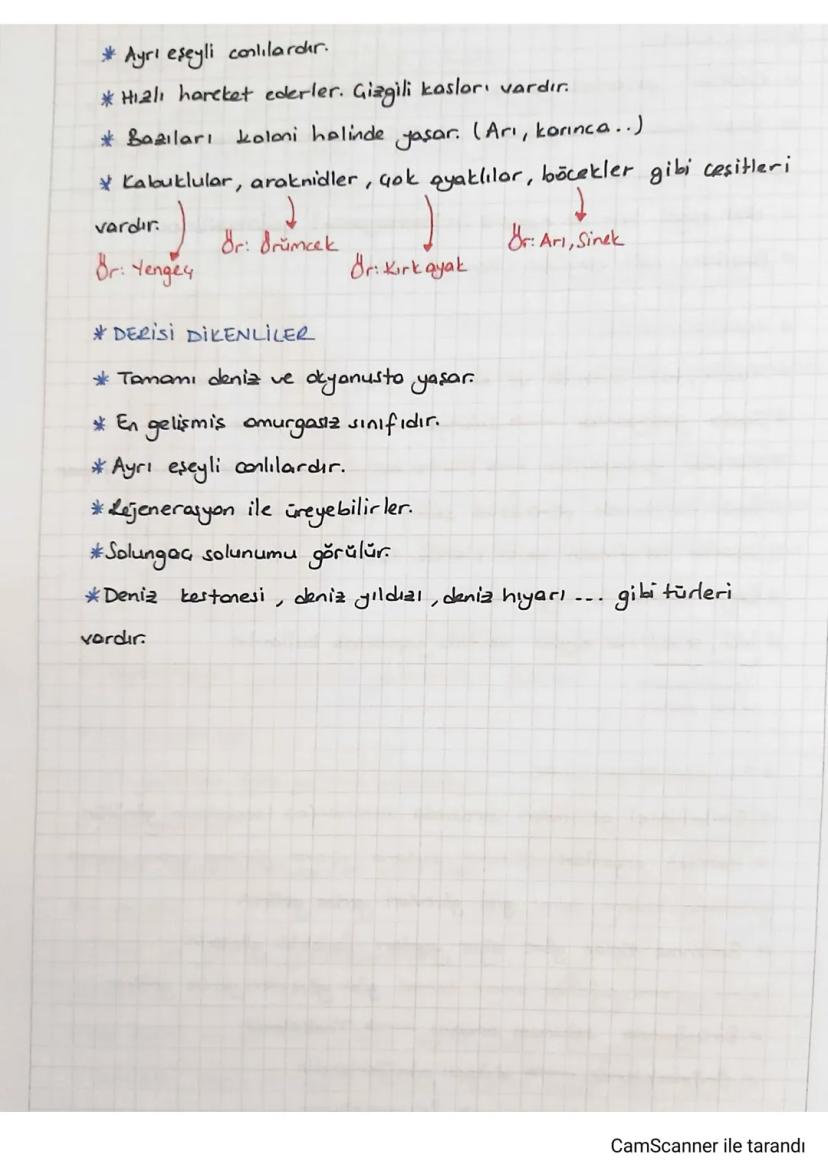 * Ayrı eşeyli canlılardır.
* Hızlı hareket ederler. Çizgili kasları vardır.
* Bazıları koloni halinde yaşar. (Arı, karınca..)
* Kabuklular, araknidler, çok ayaklılar, böcekler gibi çeşitleri
vardır.
Ör: Yengeç
Ör: Örümcek
Ör: Kırkayak
Ör: Arı, Sinek
* DERİSİ DİKENLİLER
* Tamamı deniz ve okyanusta yaşar.
* En gelişmiş omurgasız sınıfıdır.
* Ayrı eşeyli canlılardır.
* Rejenerasyon ile üreyebilirler.
* Solungaç solunumu görülür.
* Deniz kestanesi, deniz yıldızı, deniz hıyarı ... gibi türleri
vardır.
CamScanner ile tarandı